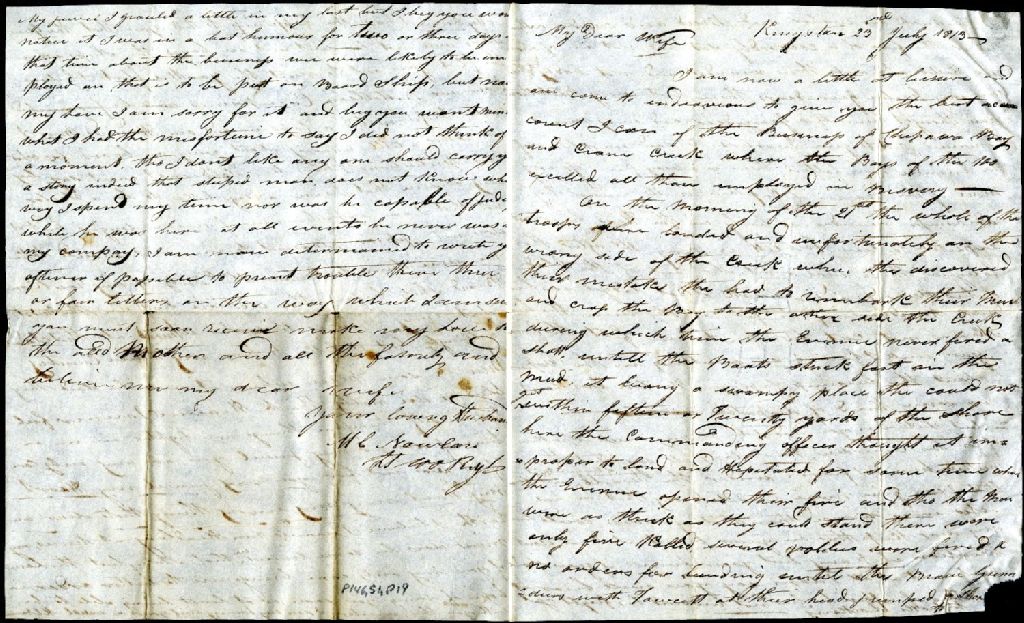 My Dear Wife Kingston 23rd July 1813
I am now a little at leisure and
am come to endeavour to give you the best
count I can of the Business of Bay
and Crane Creek where the Boys of the
excelled all them employed in
On the Morning of the 21st the whole of the
troops landed and unfortunately on the
wrong side of the Creek when the discovered
their mistake the had to reimbark their Men
and cross the Bay to the other side the Creek
during which time the Enemie never fired a
shot untill the Boats stuck fast in the
Mud it being a swampy place the could not
get within fifteen or Twenty yards of the shore
here the Commanding officer thought it im
proper to land and Hesitated for some time when
the Enemie opened their fire and tho the Men
were as thick as they could stand there were
only five Killed several vollies were fired &
no orders for landing until the Brave
with Fawcett at their head jumped
My perice I growled a little in my last but I beg you
notice it I was in a bad humour for two or three days
that time about the business we were likely to be em
ployed on that is to be put on Board Ship, but now
my love I am sorry for it and beg you wont
what I had the misfortune to say I did not think of
a moment tho I dont like any one should carry
a story indeed that stupid man does not know
way I spend my time nor was he capable of
while he was here at all events he never was
my company. I am now determined to write
oftener if possible to prevent trouble there
or four letters on the way which
you must soon receive make my love
the old Mother and all the family and
believe me my dear wife
Your loving Husband
Lt
P146,S4,P19